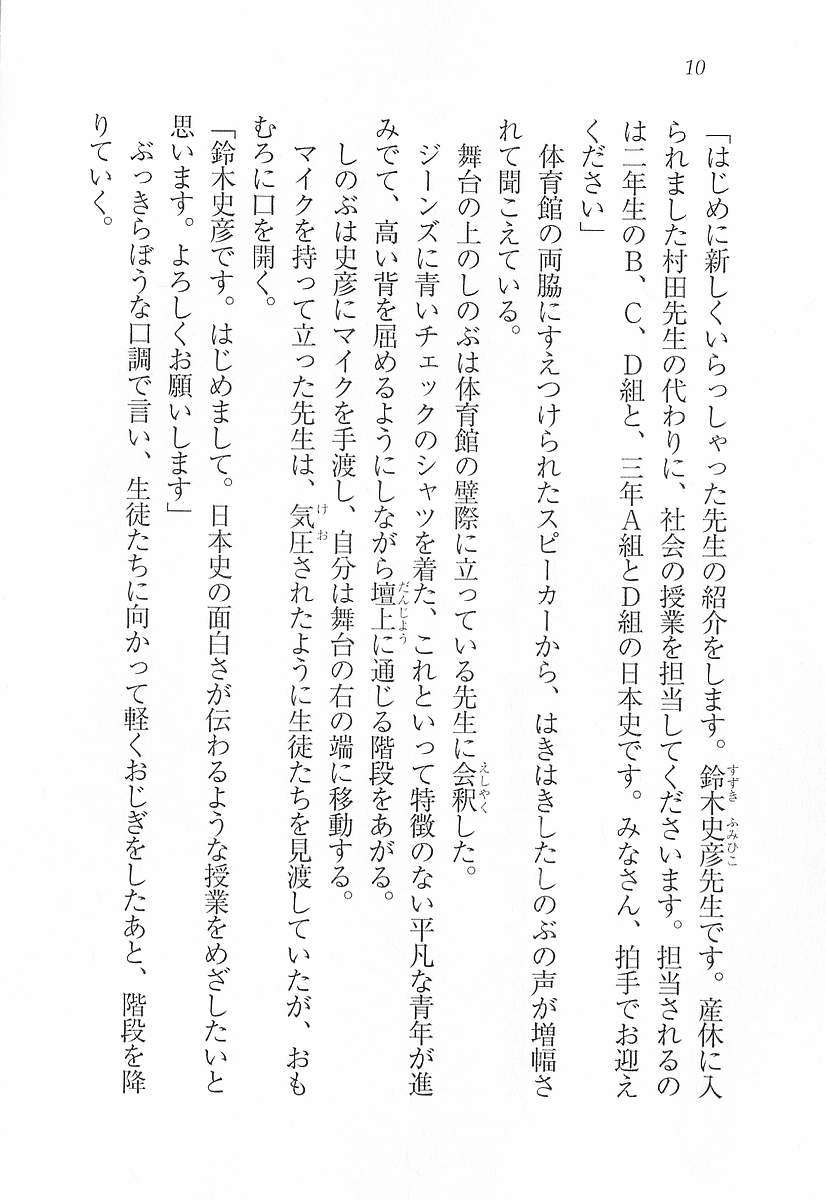 10
「はじめに新しくいらっしゃった先生の紹介をします。鈴木史彦先生です。産休に入
すずき ふみひこ
られました村田先生の代わりに、社会の授業を担当してくださいます。担当されるの
は二年生のB、C、D組と、三年A組とD組の日本史です。みなさん、拍手でお迎え
ください」
体育館の両脇にすえつけられたスピーカーから、はきはきしたしのぶの声が増幅さ
れて聞こえている。
舞台の上のしのぶは体育館の壁際に立っている先生に会釈した。
えしゃく
ジーンズに青いチェックのシャツを着た、これといって特徴のない平凡な青年が進
みでて、高い背を屈めるようにしながら壇上に通じる階段をあがる。
だんじょう
しのぶは史彦にマイクを手渡し、自分は舞台の右の端に移動する。
マイクを持って立った先生は、気圧されたように生徒たちを見渡していたが、おも
けお
むろに口を開く。
「鈴木史彦です。はじめまして。日本史の面白さが伝わるような授業をめざしたいと
思います。よろしくお願いします」
ぶっきらぼうな口調で言い、生徒たちに向かって軽くおじぎをしたあと、階段を降
りていく。